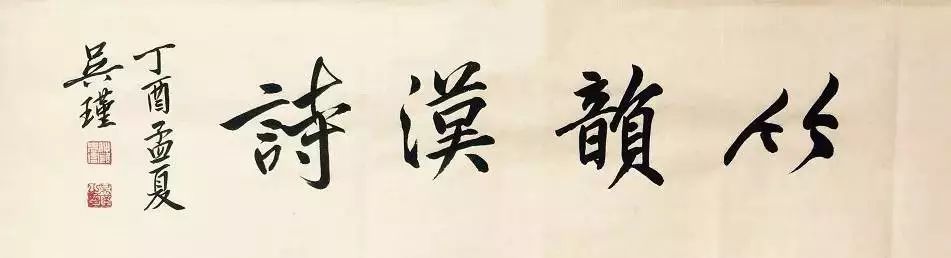 竹韻漢詩
丁酉孟夏
吴瑾